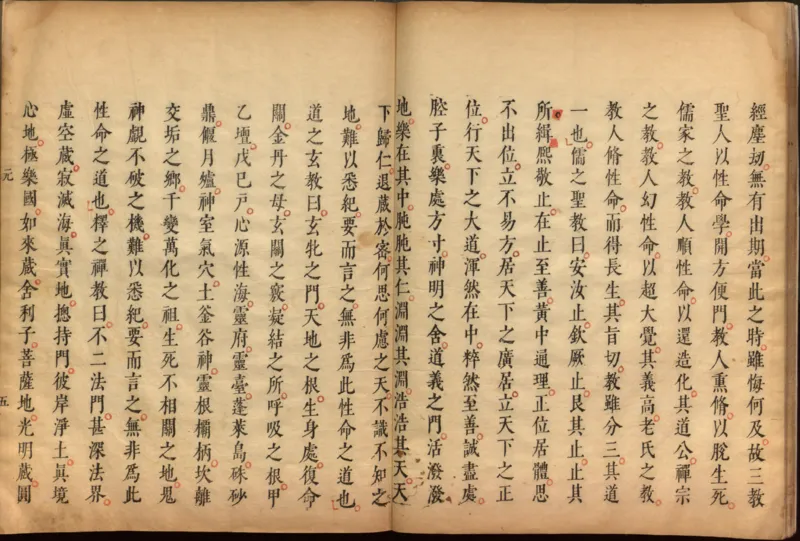 經塵劫無有出期當此之時雖悔何及故三教
聖人以性命學開方便門教人熏脩以脫生死
儒家之教教人順性命以還造化其道公禪宗
之教教人幻性命以超大覺其義高老氏之教
教人脩性命而得長生其旨切教雖分三其道
一也儒之聖教曰安汝止欽厥止艮其止止其
所緝熙敬止在止至善黃中通理正位居體思
不出位立不易方居天下之廣居立天下之正
位行天下之大道渾然在中粹然至善誠盡處
腔子裏樂處方寸神明之舍道義之門活潑潑
地樂在其中肫肫其仁淵淵其淵浩浩其天天
下歸仁退藏於密何思何慮之天不識不知之
地難以悉紀要而言之無非爲此性命之道也
道之玄教曰玄牝之門天地之根生身處復命
關金丹之母玄關之竅凝結之所呼吸之根甲
乙壇戊巳戸心源性海靈府靈臺蓬萊島硃砂
鼎偃月爐神室氣穴土釜谷神靈根欛柄坎離
交垢之鄉千變萬化之祖生死不相關之地鬼
神覷不破之機難以悉紀要而言之無非爲此
性命之道也釋之禪教曰不二法門甚深法界
虛空藏寂滅海眞實地摠持門彼岸淨土眞境
心地極樂國如來藏舍利子菩薩地光明藏圓
元 五